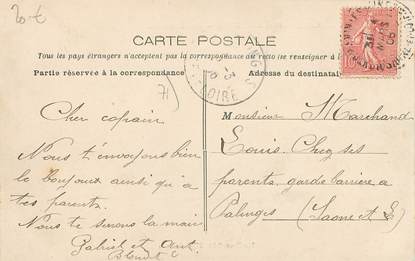 20 €
CARTE POSTALE
Tous les pays étrangers n'acceptent pas la correspondance au recto (se renseigner à
Partie réservée à la correspondance
Adresse du destinatai
71
LOIRE
Cher copain
Nous t'envoyons bien
le bonjour ainsi qu'à
tes parents.
Nous te serrons la main
Gabriel et Ant.
Monsieur Marchand
Louis. Chez ses
parents. garde barrière à
Palinges
(Saone et L)